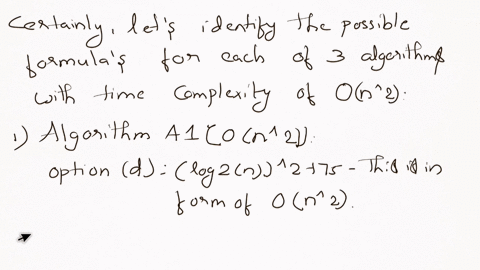 Certainly, let's identify the possible
formula's for each of 3 algorithms
with time complexity of O(n^2).
1) Algorithm A1[O(n^2)].
option (d): (log2(n))^2+75 - This is in
form of O(n^2).